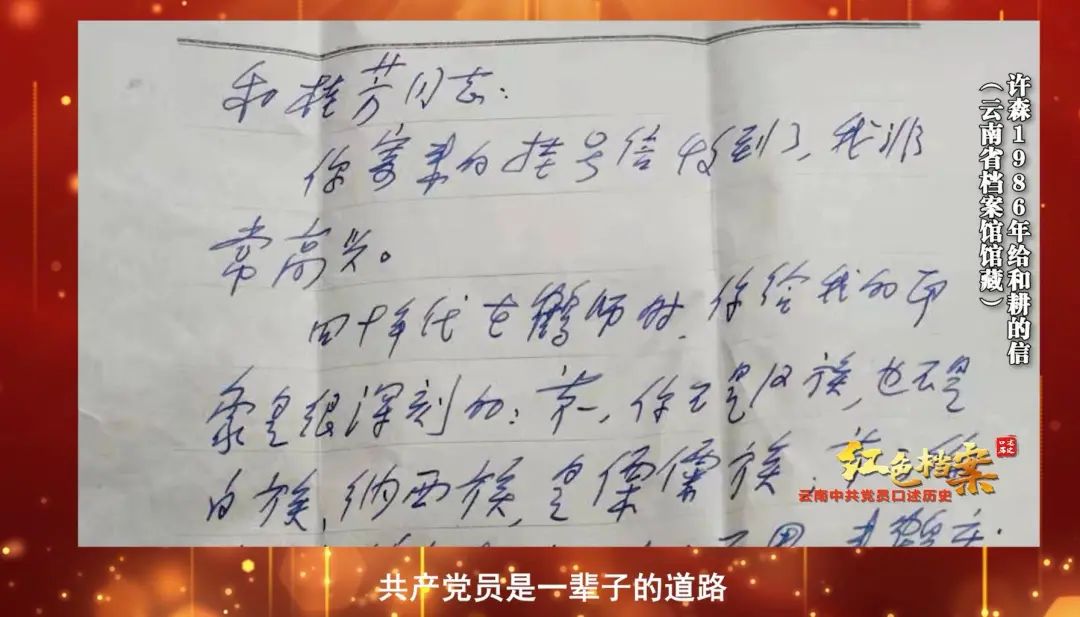 和桂芳同志：
你寄来的挂号信收到了，我非
常高兴。
四十年代在鹤师时，你给我的印
象是很深刻的：第一，你不是汉族，也不是
白族，纳西族，是傈僳族，第
许森1986年给和耕的信
（云南省档案馆馆藏）
口述历史
红色档案
云南中共党员口述历史
共产党员是一辈子的道路